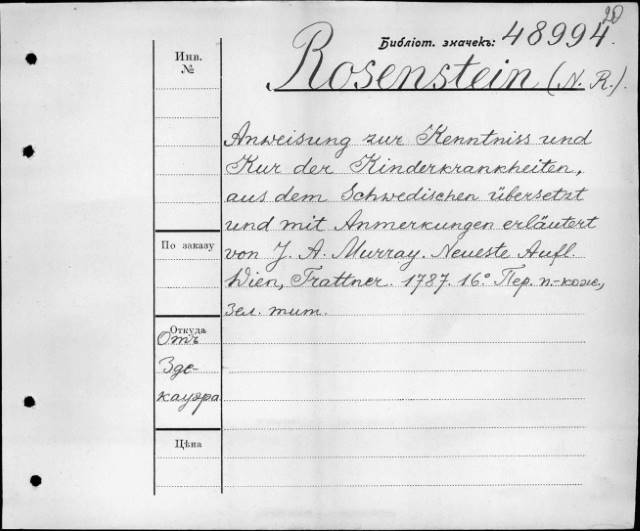 20
Библіот. значекъ: 48994
Инв.
№
Rosenstein (N. R.).
Anweisung zur Kenntniss und
Kur der Kinderkrankheiten,
aus dem Schwedischen übersetzt
und mit Anmerkungen erläutert
По заказу
von J. A. Murray. Neueste Aufl.
Wien, Trattner. 1787. 16° Пер. п.-коже,
зел. тит.
Откуда
Отъ
Зде-
кауэра
Цѣна